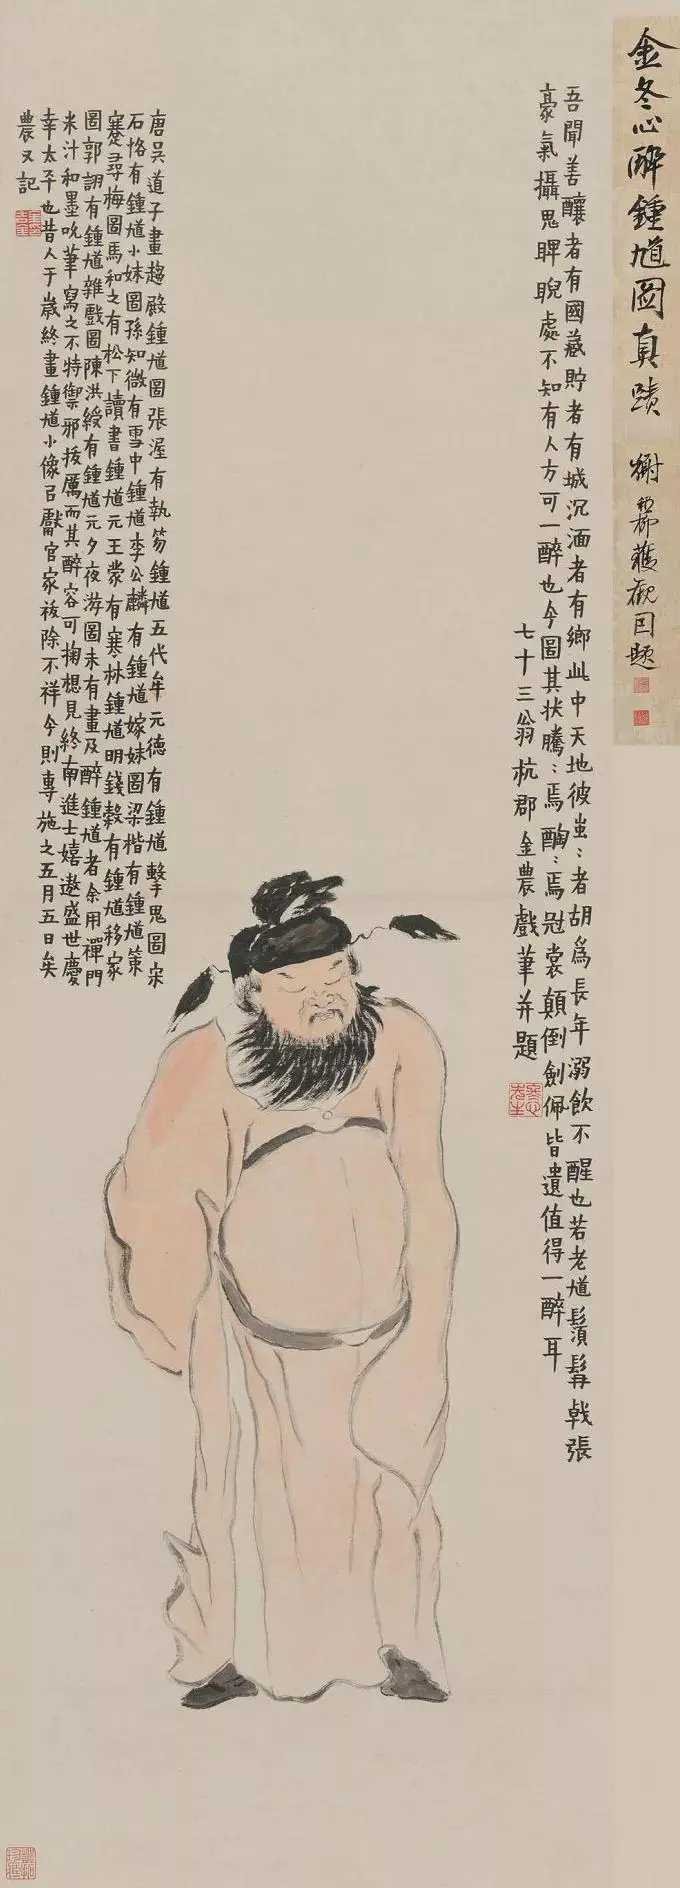 金冬心醉鍾馗圖真蹟
獲觀因題
吾聞善釀者有國藏貯者有城沉湎者有鄉此中天地彼蚩:者胡為長年溺飲不醒也若老馗鬚髯戟張
豪氣攝鬼睥睨處不知有人方可一醉也今圖其狀騰:焉醄:焉冠裳顛倒劍佩皆遺值得一醉耳
七十三翁杭郡金農戲筆并題
唐吳道子畫趨殿鍾馗圖張渥有執笏鍾馗五代牟元德有鍾馗擊鬼圖宋
石恪有鍾馗小妹圖孫知微有雪中鍾馗李公麟有鍾馗嫁妹圖梁楷有鍾馗策
蹇尋梅圖馬和之有松下讀書鍾馗元王蒙有寒林鍾馗明錢穀有鍾馗移家
圖郭詡有鍾馗雜戲圖陳洪綬有鍾馗元夕夜游圖未有畫及醉鍾馗者余用禪門
米汁和墨吮筆寫之不特禦邪拔厲而其醉容可掬想見終南進士嬉遨盛世慶
幸太平也昔人于歲終畫鍾馗小像㠯獻官家祓除不祥今則專施之五月五日矣
農又記